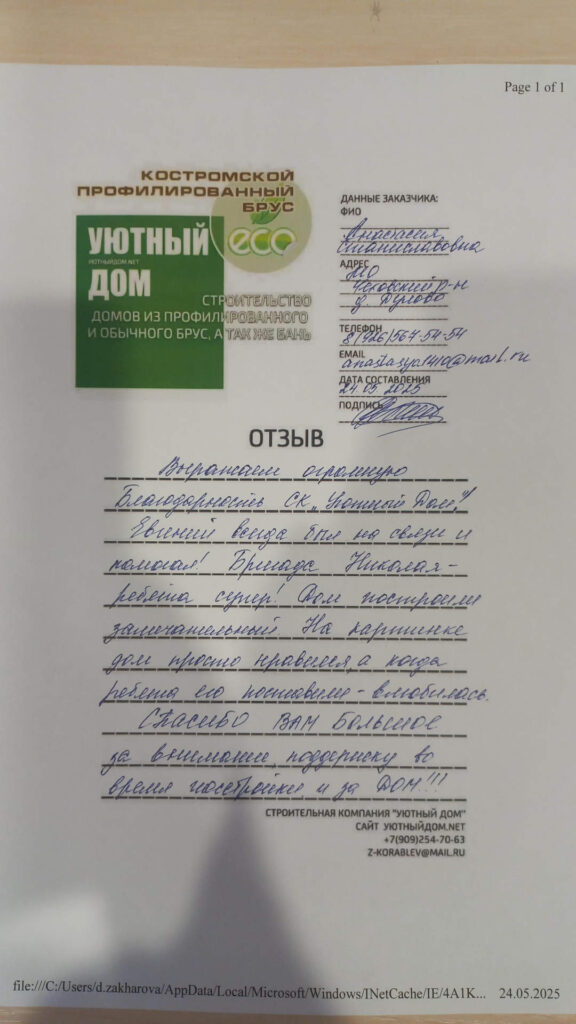 Page 1 of 1
КОСТРОМСКОЙ
ПРОФИЛИРОВАННЫЙ
БРУС
УЮТНЫЙ
УЮТНЫЙДОМ.NET
ДОМ
eco
СТРОИТЕЛЬСТВО
ДОМОВ ИЗ ПРОФИЛИРОВАННОГО
И ОБЫЧНОГО БРУС, А ТАК ЖЕ БАНЬ
ДАННЫЕ ЗАКАЗЧИКА:
ФИО
Анастасия
Станиславовна
АДРЕС
МО
Чеховский р-н
д. Дулово
ТЕЛЕФОН
8(926)567-54-54
EMAIL
anastasya1410@mail.ru
ДАТА СОСТАВЛЕНИЯ
24.05 2025
ПОДПИСЬ
ОТЗЫВ
Выражаем огромную
Благодарность СК „Уютный Дом"!
Евгений всегда был на связи и
помогал! Бригада Николая-
ребята супер! Дом построили
замечательный. На картинке
дом просто нравился, а когда
ребята его поставили - влюбилась.
Спасибо ВАМ Большое
за внимание, поддержку во
время постройки и за ДОМ!!!
СТРОИТЕЛЬНАЯ КОМПАНИЯ "УЮТНЫЙ ДОМ"
САЙТ УЮТНЫЙДОМ.NET
+7(909)254-70-63
Z-KORABLEV@MAIL.RU
file:///C:/Users/d.zakharova/AppData/Local/Microsoft/Windows/INetCache/IE/4A1K... 24.05.2025